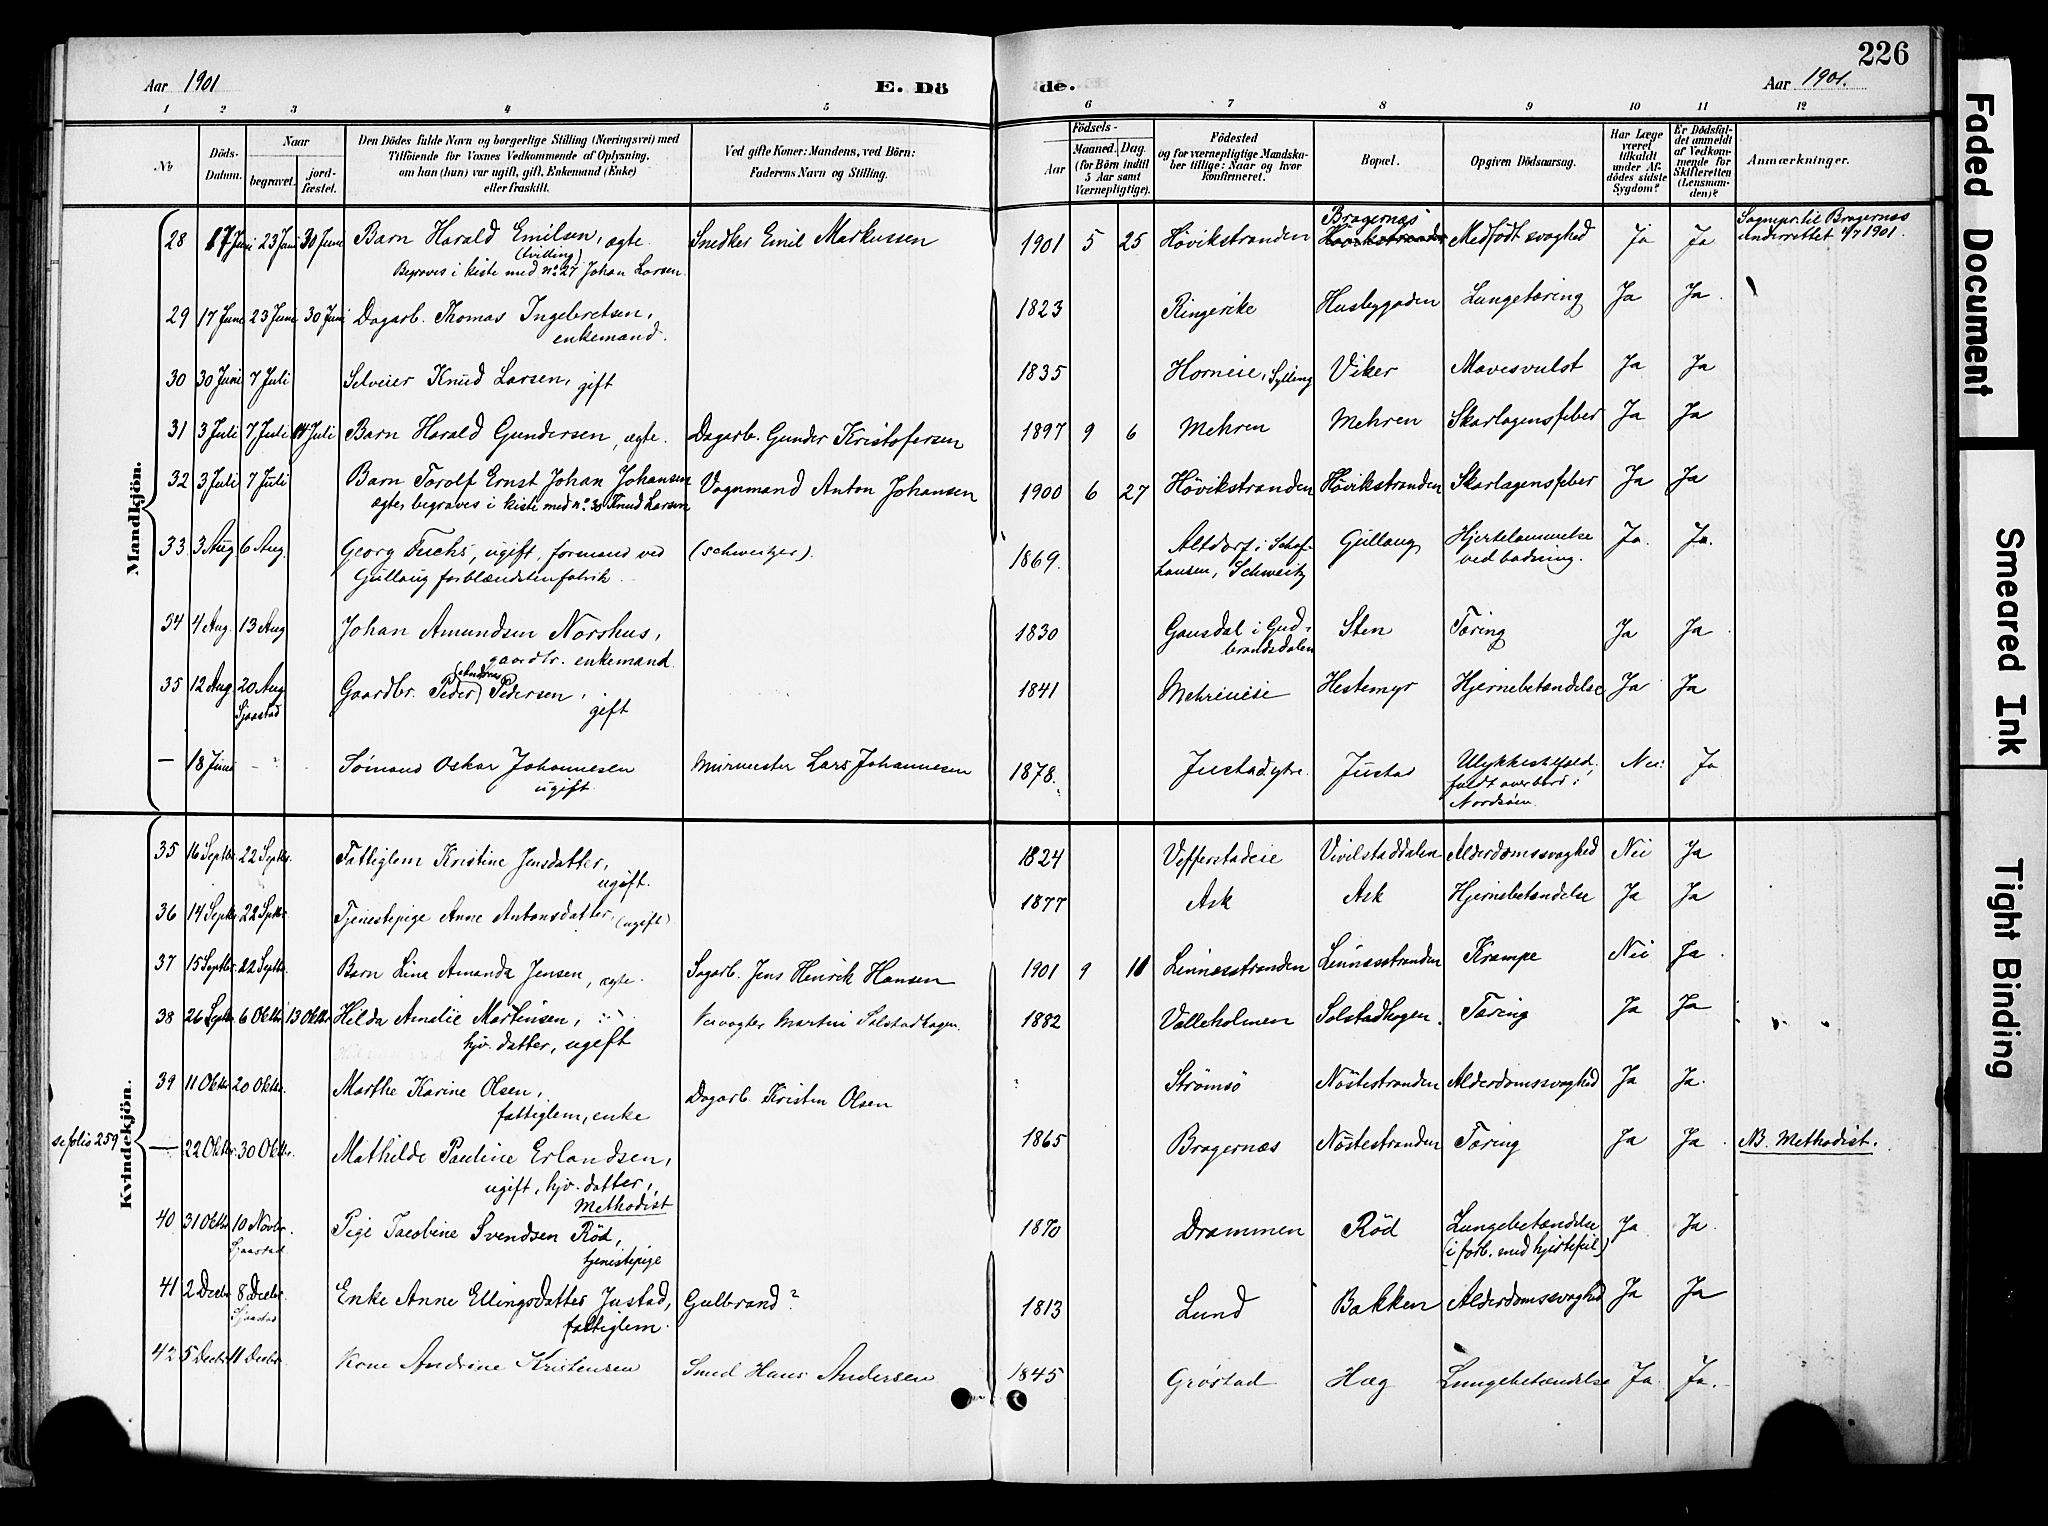 226
Aar 1901
E. Dö
de.
Aar 1901.
1 2 3 4 5 6 7 8 9 10 11 12
No
Döds-Datum.
Naar
begravet.
jord-fæstet.
Den Dödes fulde Navn og borgerlige Stilling (Næringsvei) med
Tilföiende for Voxnes Vedkommende af Oplysning,
om han (hun) var ugift, gift, Enkemand (Enke)
eller fraskilt.
Ved gifte Koner: Mandens, ved Börn:
Faderens Navn og Stilling.
Födsels-
Aar
Maaned. Dag.
(for Börn indtil
5 Aar samt
Værnepligtige).
Födested
og for værnepligtige Mandska-
ber tillige: Naar og hvor
konfirmeret.
Bopæl.
Opgiven Dödsaarsag.
Har Læge
været
tilkaldt
under Af-
dödes sidste
Sygdom?
Er Dödsfal-
det anmeldt
af Vedkom-
mende for
Skifteretten
(Lensman-
den)?
Anmærkninger.
Mandkjön.
28 17 Juni 23 Juni 30 Juni Barn Harald Emilsen, ægte. Snedker Emil Markussen 1901 5 25 Høvikstranden Bragernæs Høvikstranden Medfødt svaghed Ja Ja Sognepr. til Bragernæs
(tvilling)
underrettet 4/7 1901.
Begraves i kiste med no 27 Johan Larsen.
29 17 Juni 23 Juni 30 Juni Dagarb. Thomas Ingebretsen, 1823 Ringerike Husbygaden Lungetæring Ja Ja.
enkemand.
30 30 Juni 7 Juli Selveier Knud Larsen, gift 1835 Horneie, Sylling Viker Mavesvulst Ja Ja
31 3 Juli 7 Juli 14 Juli Barn Harald Gundersen, ægte. Dagarb. Gunder Kristofersen 1897 9 6 Mehren Mehren Skarlagensfeber Ja Ja
32 3 Juli 7 Juli Barn Torolf Ernst Johan Johansen Vognmand Anton Johansen 1900 6 27 Høvikstranden Høvikstranden Skarlagensfeber Ja Ja
ægte, begraves i kiste med no 30 Knud Larsen
33 3 Aug 6 Aug. Georg Fuchs, ugift, formand ved (schweitzer). 1869. Altdorf i Schaf- Gullaug Hjertelammelse Ja. Ja.
Gullaug forblændstenfabrik. hausen, Schweitz ved badning.
34 4 Aug. 13 Aug Johan Amundsen Norshus, 1830 Gausdal i Gud- Sten Tæring Ja Ja
gaardbr. enkemand. brandsdalen
35 12 Aug. 20 Aug Gaardbr. Peder Pedersen, 1841 Mehreneie Hestemyr Hjernebetændelse Ja Ja
Sjaastad gift
— 18 Juni Sømand Oskar Johannesen Murmester Lars Johannesen 1878. Justadytre. Justad Ulykkestilfæld, Nei Ja
ugift faldt overbord i
Nordsøen.
Kvindekjön.
35 16 Septbr. 22 Septbr. Fattiglem Kristine Jensdatter, 1824 Vefferstadeie Vivelstaddalen Alderdomssvaghed Nei Ja
ugift.
36 14 Septbr. 22 Septbr. Tjenestepige Anne Antonsdatter, (ugift) 1877 Ask Ask Hjernebetændelse Ja Ja
37 15 Septbr. 22 Septbr. Barn Lina Amanda Jensen, ægte. Sagarb. Jens Henrik Hansen 1901 9 11 Linnæsstranden Linnæsstranden Krampe Nei Ja
38 26 Septbr. 6 Oktbr. 13 Oktbr. Hilda Amalie Martinsen, Veivogter Martin Solstadhagen. 1882 Valleholmen Solstadhagen. Tæring Ja Ja
hjv. datter, ugift
39 11 Oktbr. 20 Oktbr. Marthe Karine Olsen, Dagarb. Kristen Olsen Strømsø Nøstestranden Alderdomssvaghed Ja Ja.
fattiglem, enke
se folio 259 — 22 Oktbr. 30 Oktbr. Mathilde Pauline Erlandsen, 1865 Bragernæs Nøstestranden Tæring Ja Ja. NB. Methodist.
ugift, hjv. datter,
Methodist
40 31 Oktbr. 10 Novbr. Pige Jacobine Svendsen Rød, 1870 Drammen Rød Lungebetændelse Ja Ja.
Sjaastad tjenestepige (i forb. med hjertefeil)
41 2 Decbr. 8 Decbr. Enke Anne Ellingsdatter Justad, Gulbrand? 1813 Lund Bakken Alderdomssvaghed Ja Ja
Sjaastad fattiglem.
42 5 Decbr. 11 Decbr. Kone Andrine Kristensen Smed Hans Andersen 1845 Grøstad Hæg Lungebetændelse Ja Ja.
Faded Document
Smeared Ink
Tight Binding